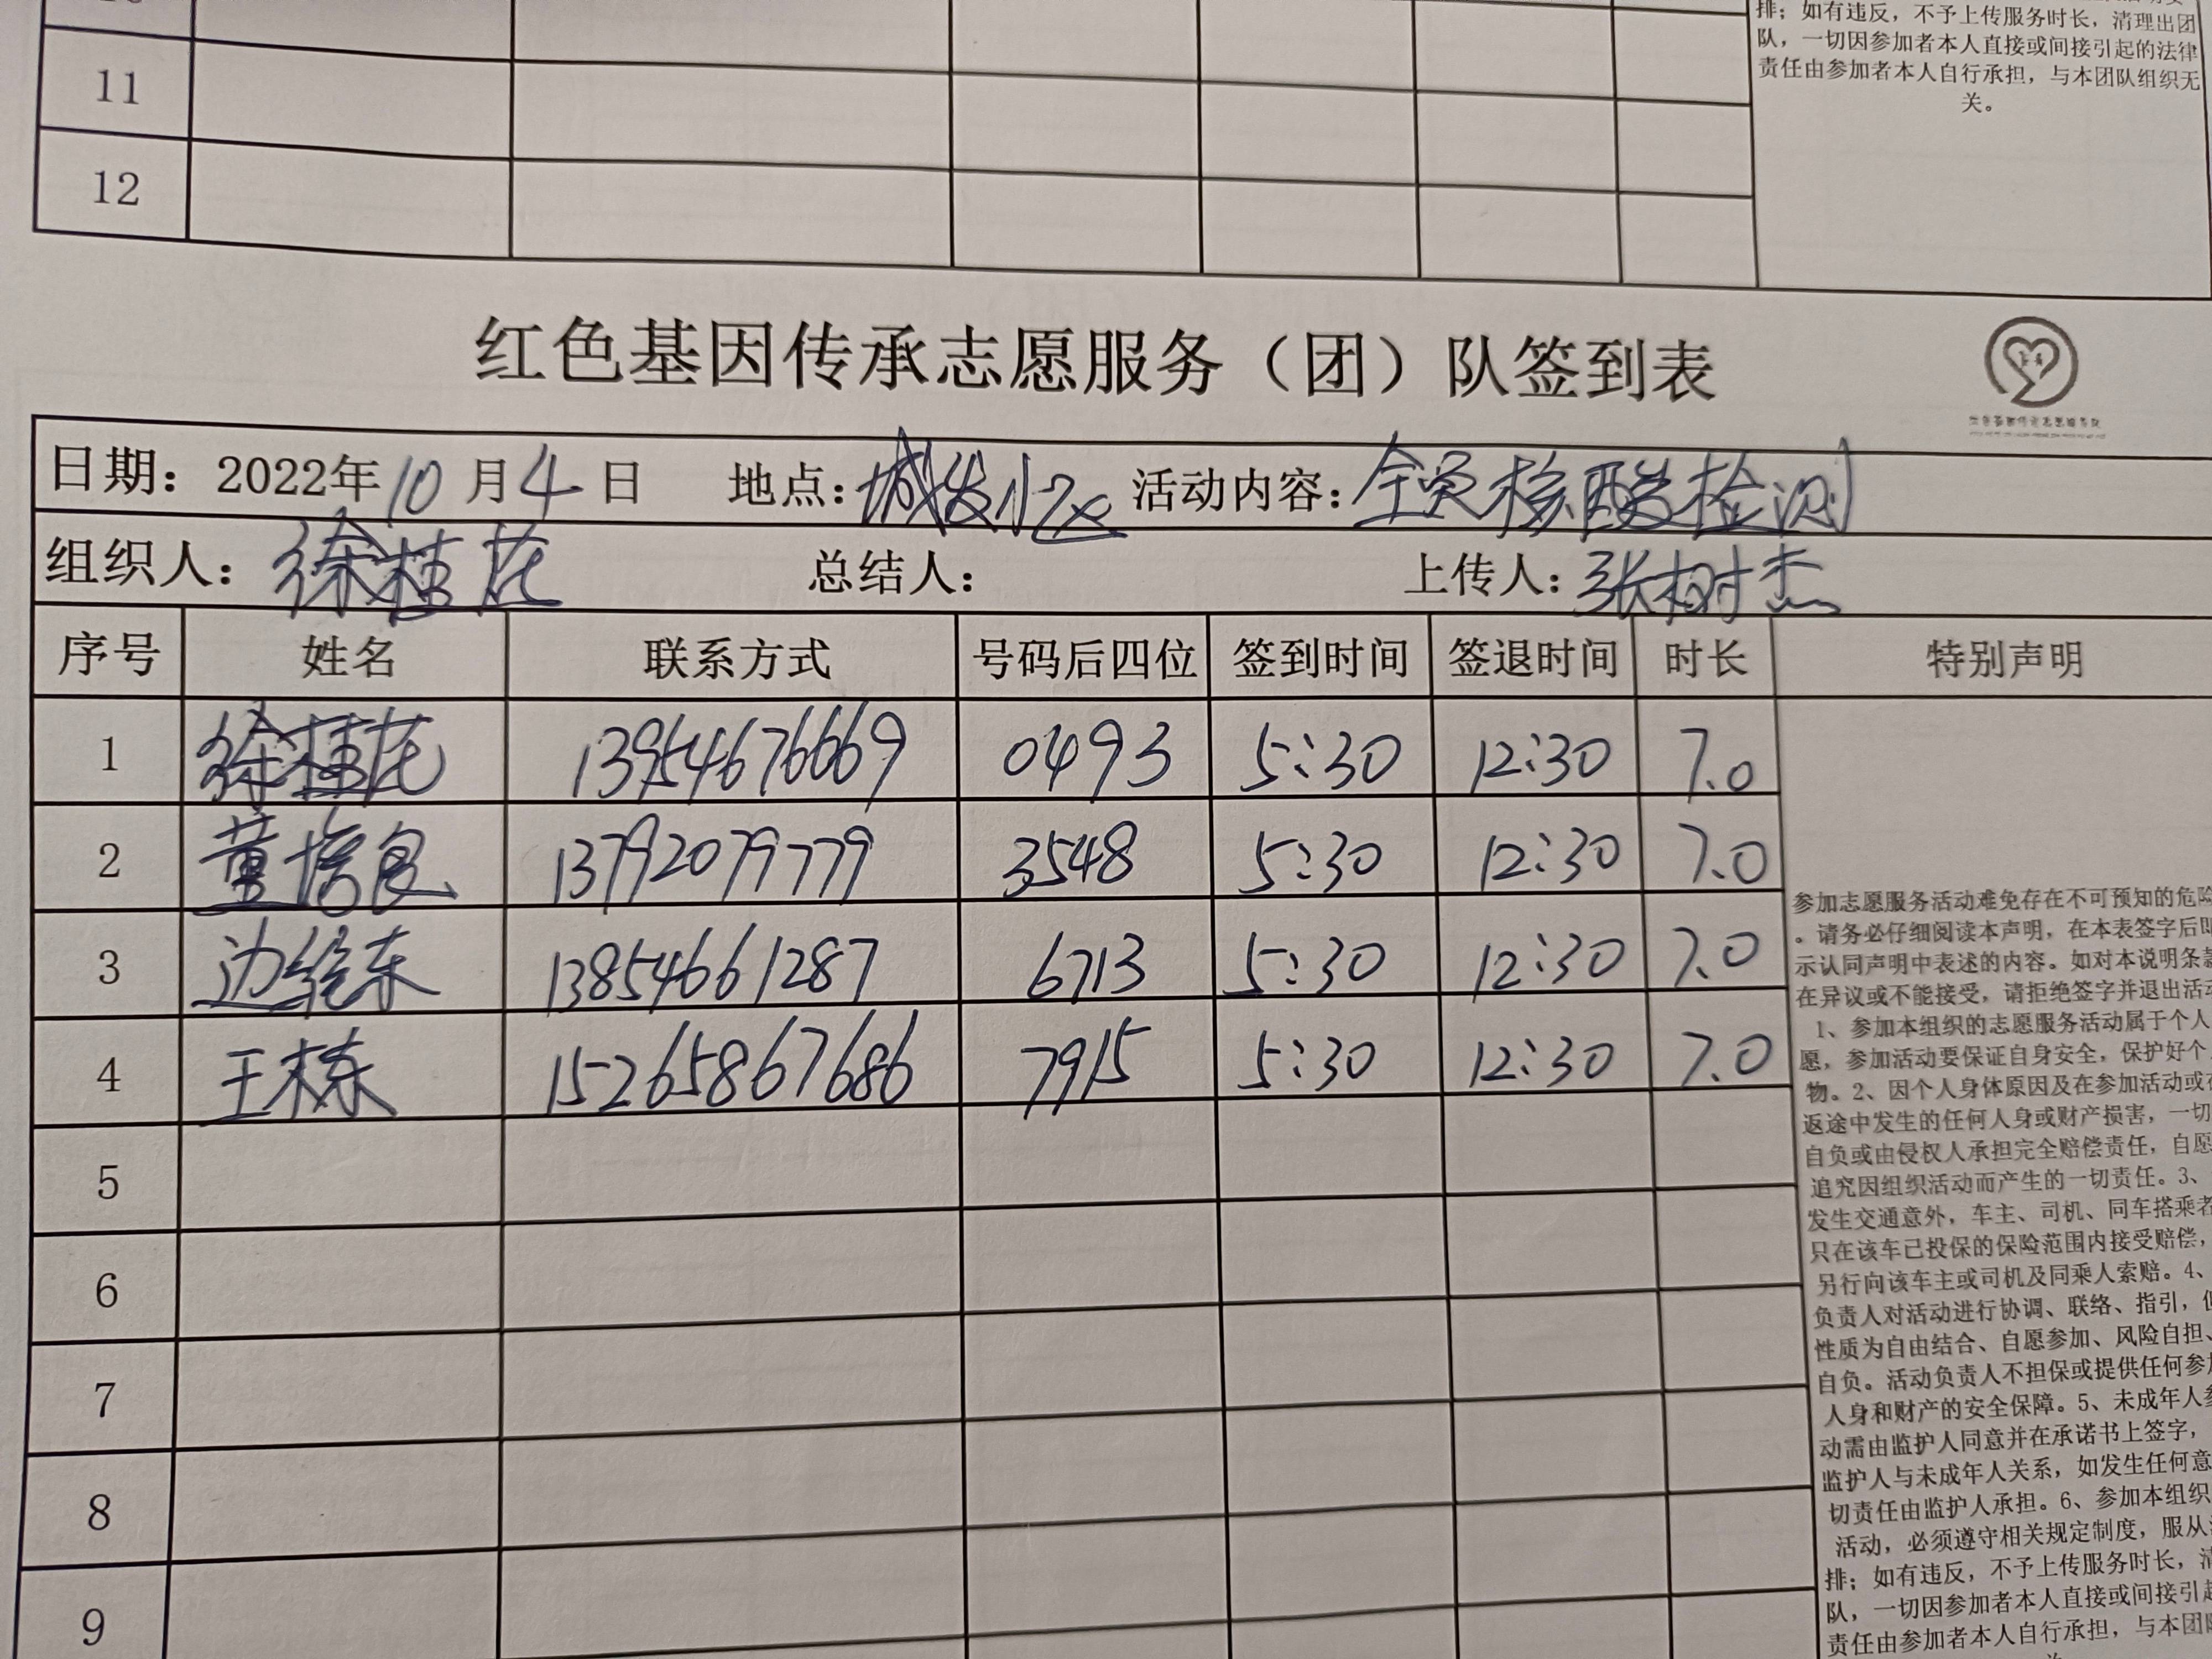 排；如有违反，不予上传服务时长，清理出团
队，一切因参加者本人直接或间接引起的法律
责任由参加者本人自行承担，与本团队组织无
关。
11
12
红色基因传承志愿服务（团）队签到表
日期：2022年10月4日 地点：城发小区 活动内容：全员核酸检测
组织人：徐桂花 总结人： 上传人：张树杰
序号 姓名 联系方式 号码后四位 签到时间 签退时间 时长 特别声明
1 徐桂花 13954676669 0493 5:30 12:30 7.0
2 董培良 13792079779 3548 5:30 12:30 7.0
3 边维东 13854661287 6713 5:30 12:30 7.0
4 王栋 15265867686 7915 5:30 12:30 7.0
5
6
7
8
9
参加志愿服务活动难免存在不可预知的危险
。请务必仔细阅读本声明，在本表签字后即
示认同声明中表述的内容。如对本说明条款
在异议或不能接受，请拒绝签字并退出活动
1、参加本组织的志愿服务活动属于个人
愿，参加活动要保证自身安全，保护好个
物。2、因个人身体原因及在参加活动或在
返途中发生的任何人身或财产损害，一切
自负或由侵权人承担完全赔偿责任，自愿
追究因组织活动而产生的一切责任。3、
发生交通意外，车主、司机、同车搭乘者
只在该车已投保的保险范围内接受赔偿，
另行向该车主或司机及同乘人索赔。4、
负责人对活动进行协调、联络、指引，但
性质为自由结合、自愿参加、风险自担、
自负。活动负责人不担保或提供任何参加
人身和财产的安全保障。5、未成年人参
动需由监护人同意并在承诺书上签字，
监护人与未成年人关系，如发生任何意
切责任由监护人承担。6、参加本组织
活动，必须遵守相关规定制度，服从
排；如有违反，不予上传服务时长，清
队，一切因参加者本人直接或间接引起
责任由参加者本人自行承担，与本团队